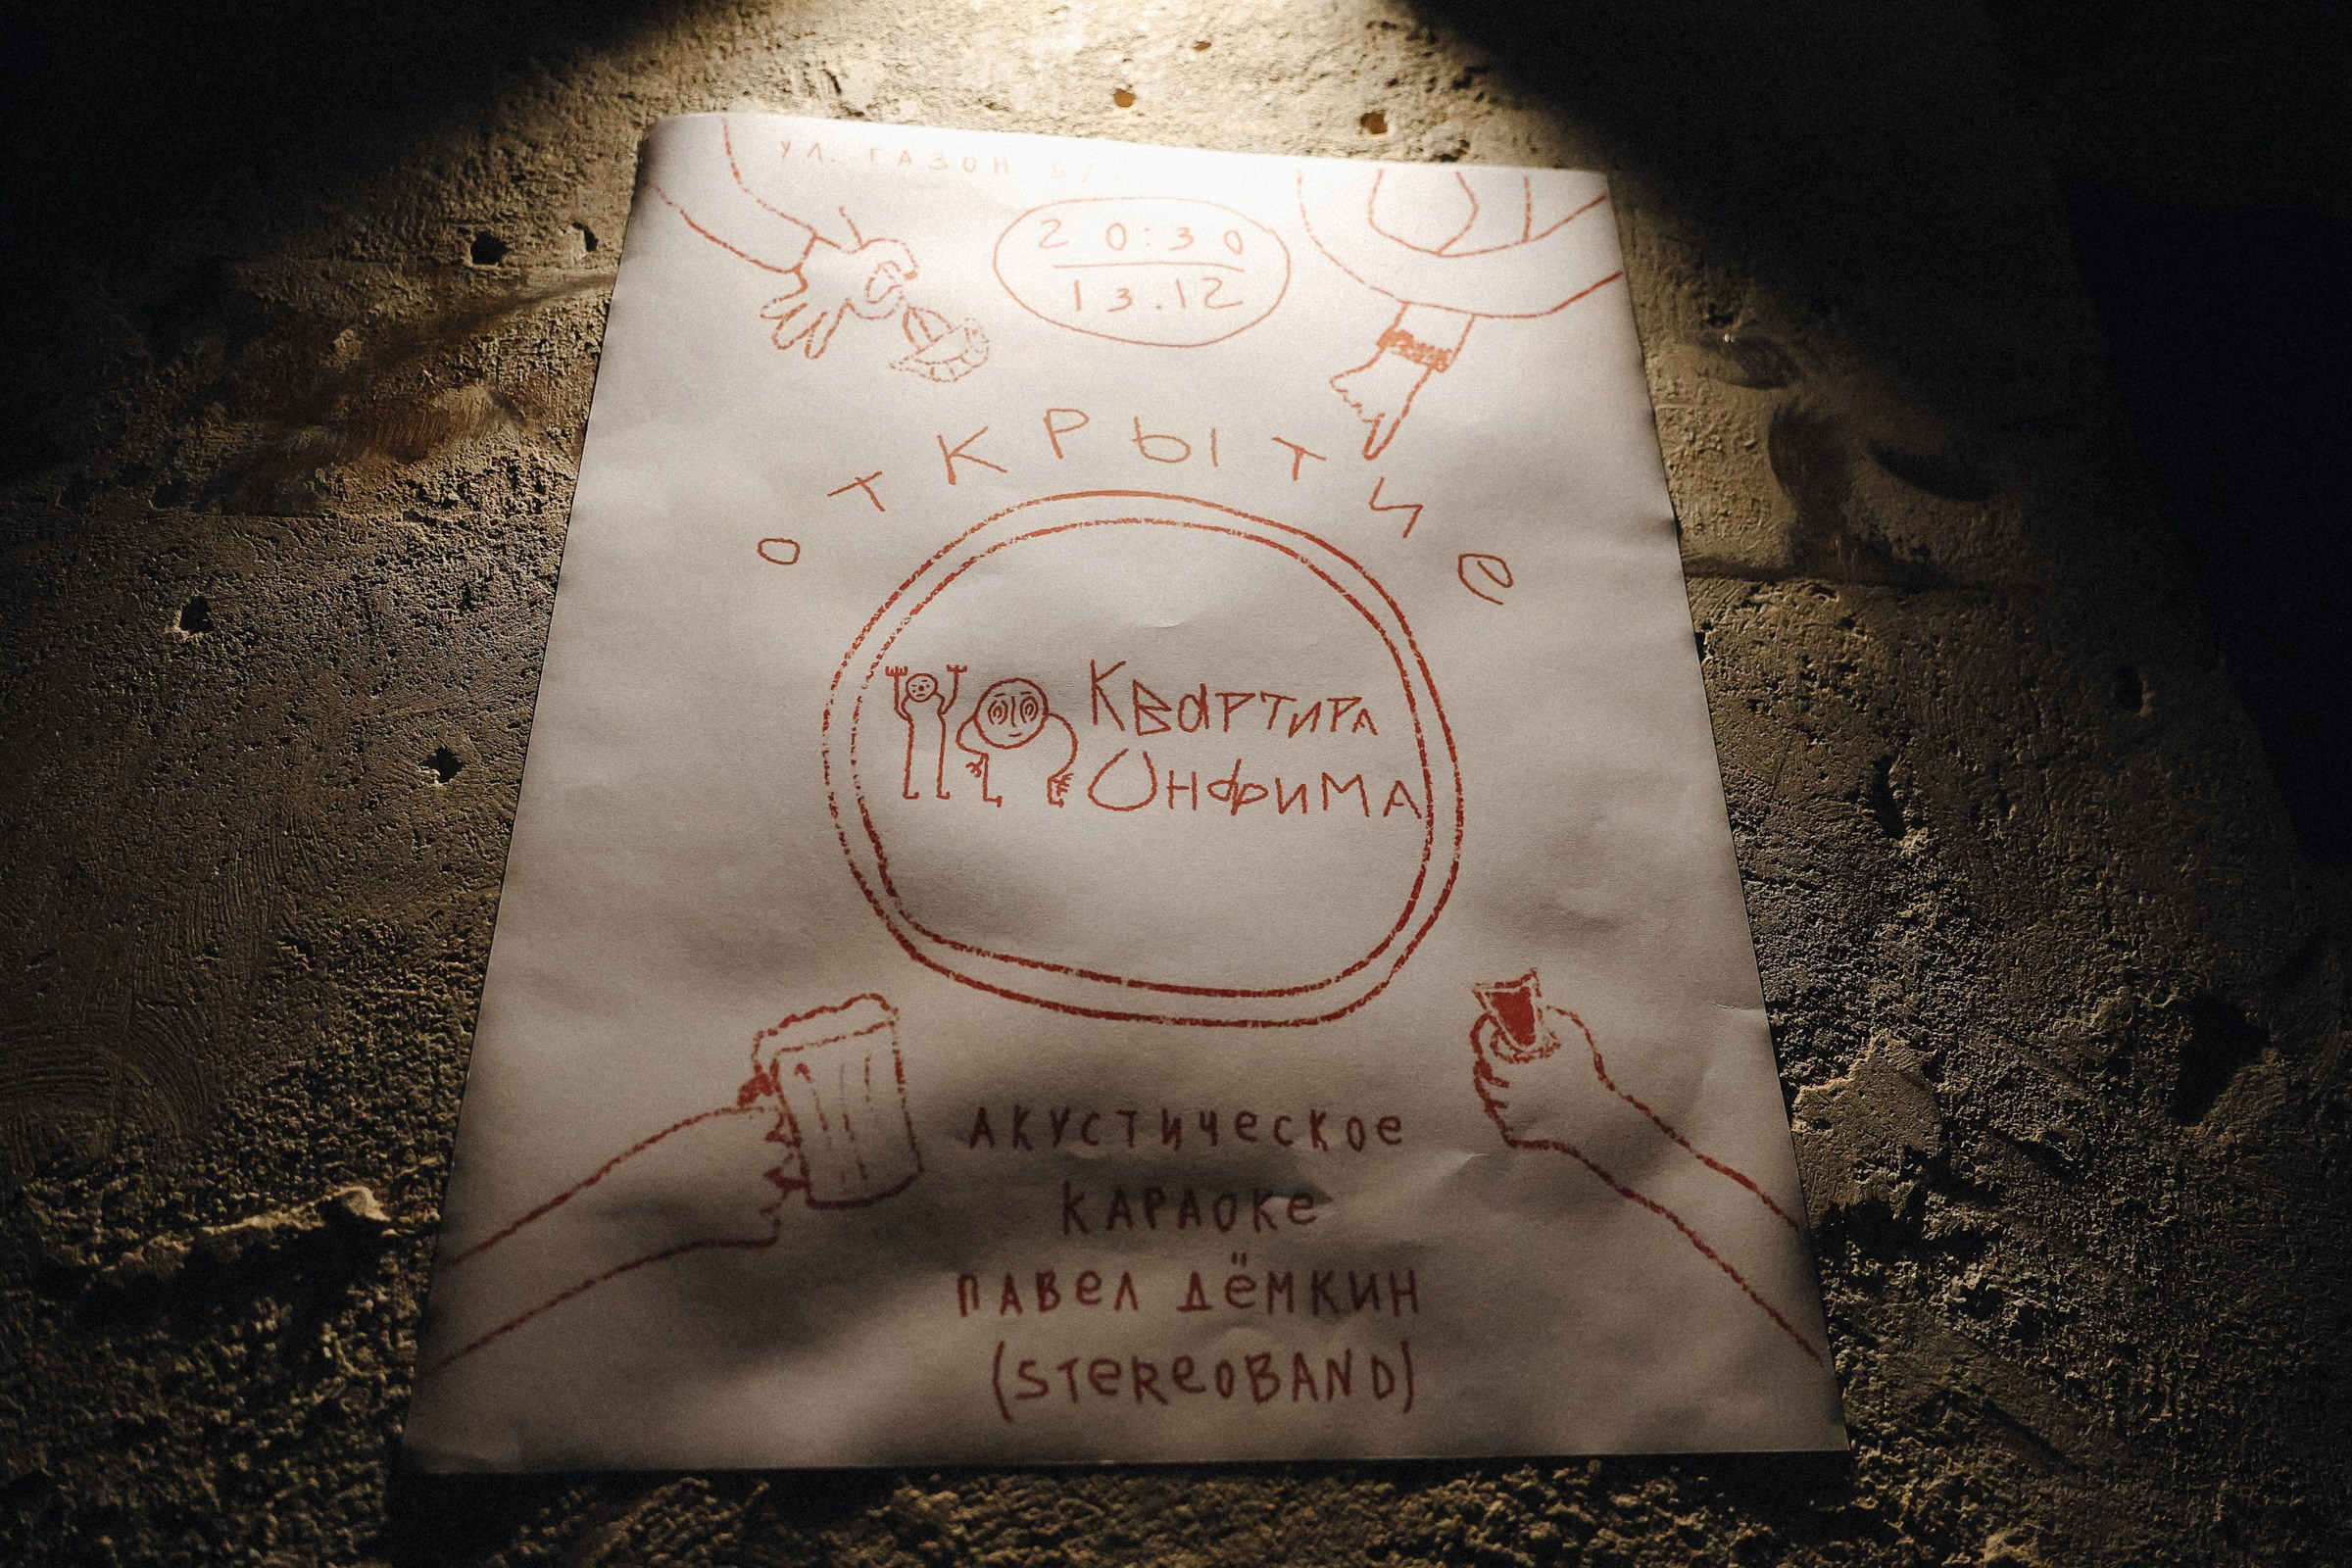 ул. ГАЗОН
20:30
13.12
оТКРЫТИе
КВаРТИРА
ОНФИМА
АКУСТИЧеСКОе
КАРАОКе
ПАВеЛ ДёМКИН
(STeReOBAND)